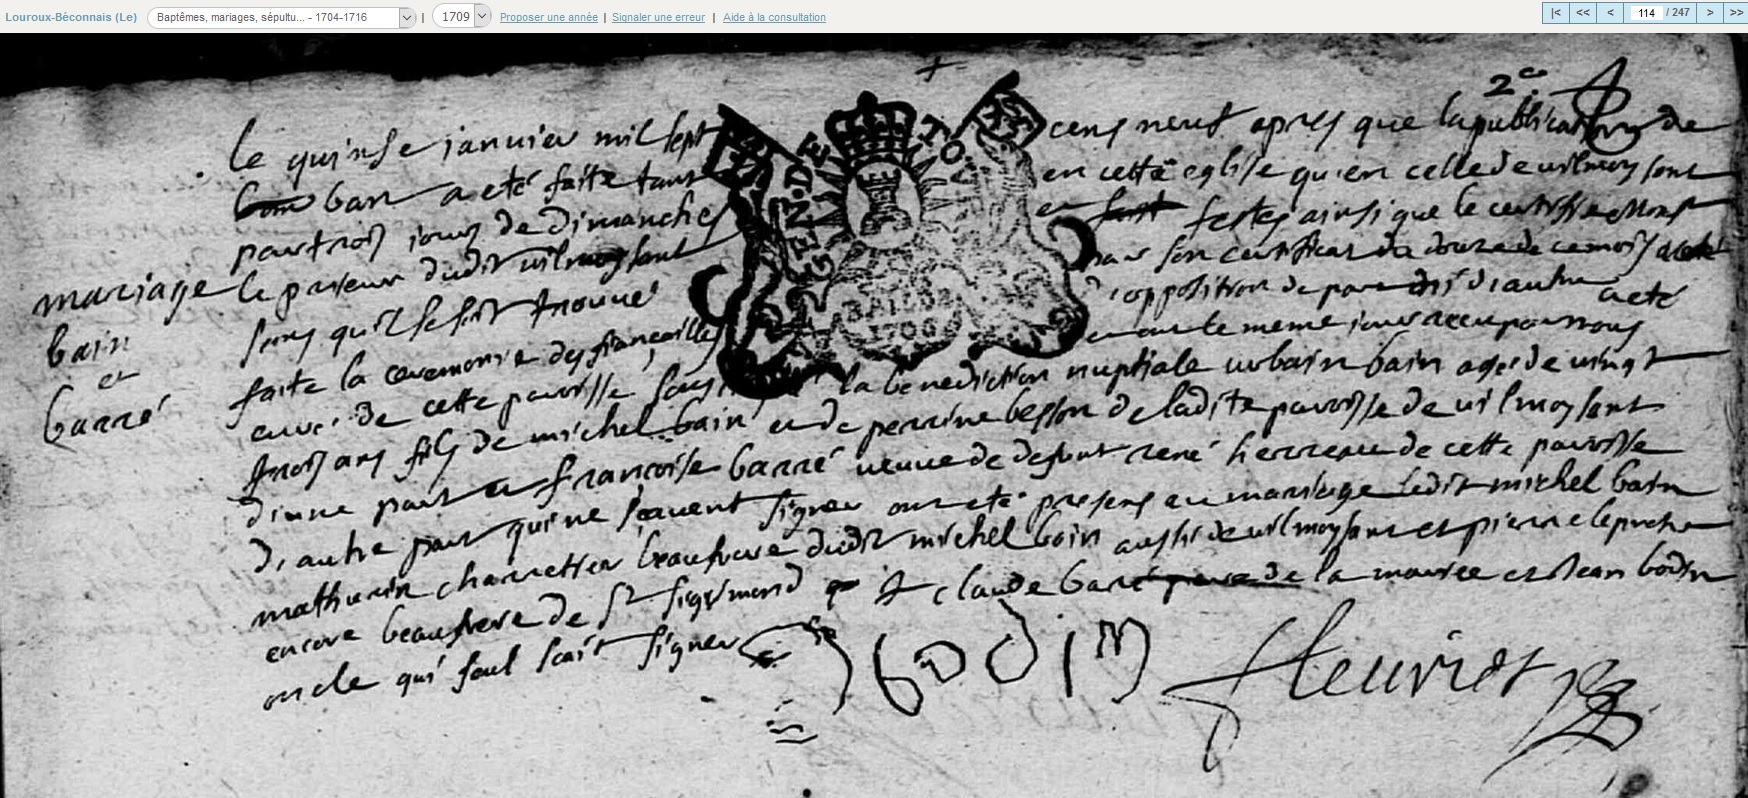 Louroux-Béconnais (Le) Baptêmes, mariages, sépultu... - 1704-1716 | 1709 Proposer une année | Signaler une erreur | Aide à la consultation |< << < 114 / 247 > >>
2e
le quinse janvier mil sept cens neuf apres que la publication de
ban a eté faite tant en cette eglise qu'en celle de vilmoysant
par trois jours de dimanches et festes ainsi que le certifie
le prieur dudit vilmoysant par son certificat du douze de ce mois
sans qu'il se soit trouué d'opposition de part ni d'autre a eté
faite la ceremonie des fiancailles et le meme jour receu par nous
curé de cette paroisse la benediction nuptiale urbain bain agé de vingt
trois ans fils de michel bain et de perrine besson de ladite paroisse de vilmoysant
d'une part et francoise barré veuve de defunt rené herreau de cette paroisse
d'autre part qui ne scavent signer ont eté presens au mariage ledit michel bain
mathurin charretier beaufrere dudit michel bain aussi de vilmoysant et pierre
encore beaufrere de St sigismond et claude baré de la mouree et Jean bodin
oncle qui seul scait signer
mariage
bain
et
barré
GEN. DE TO
BALLON
1706
J bodin
fleuriot